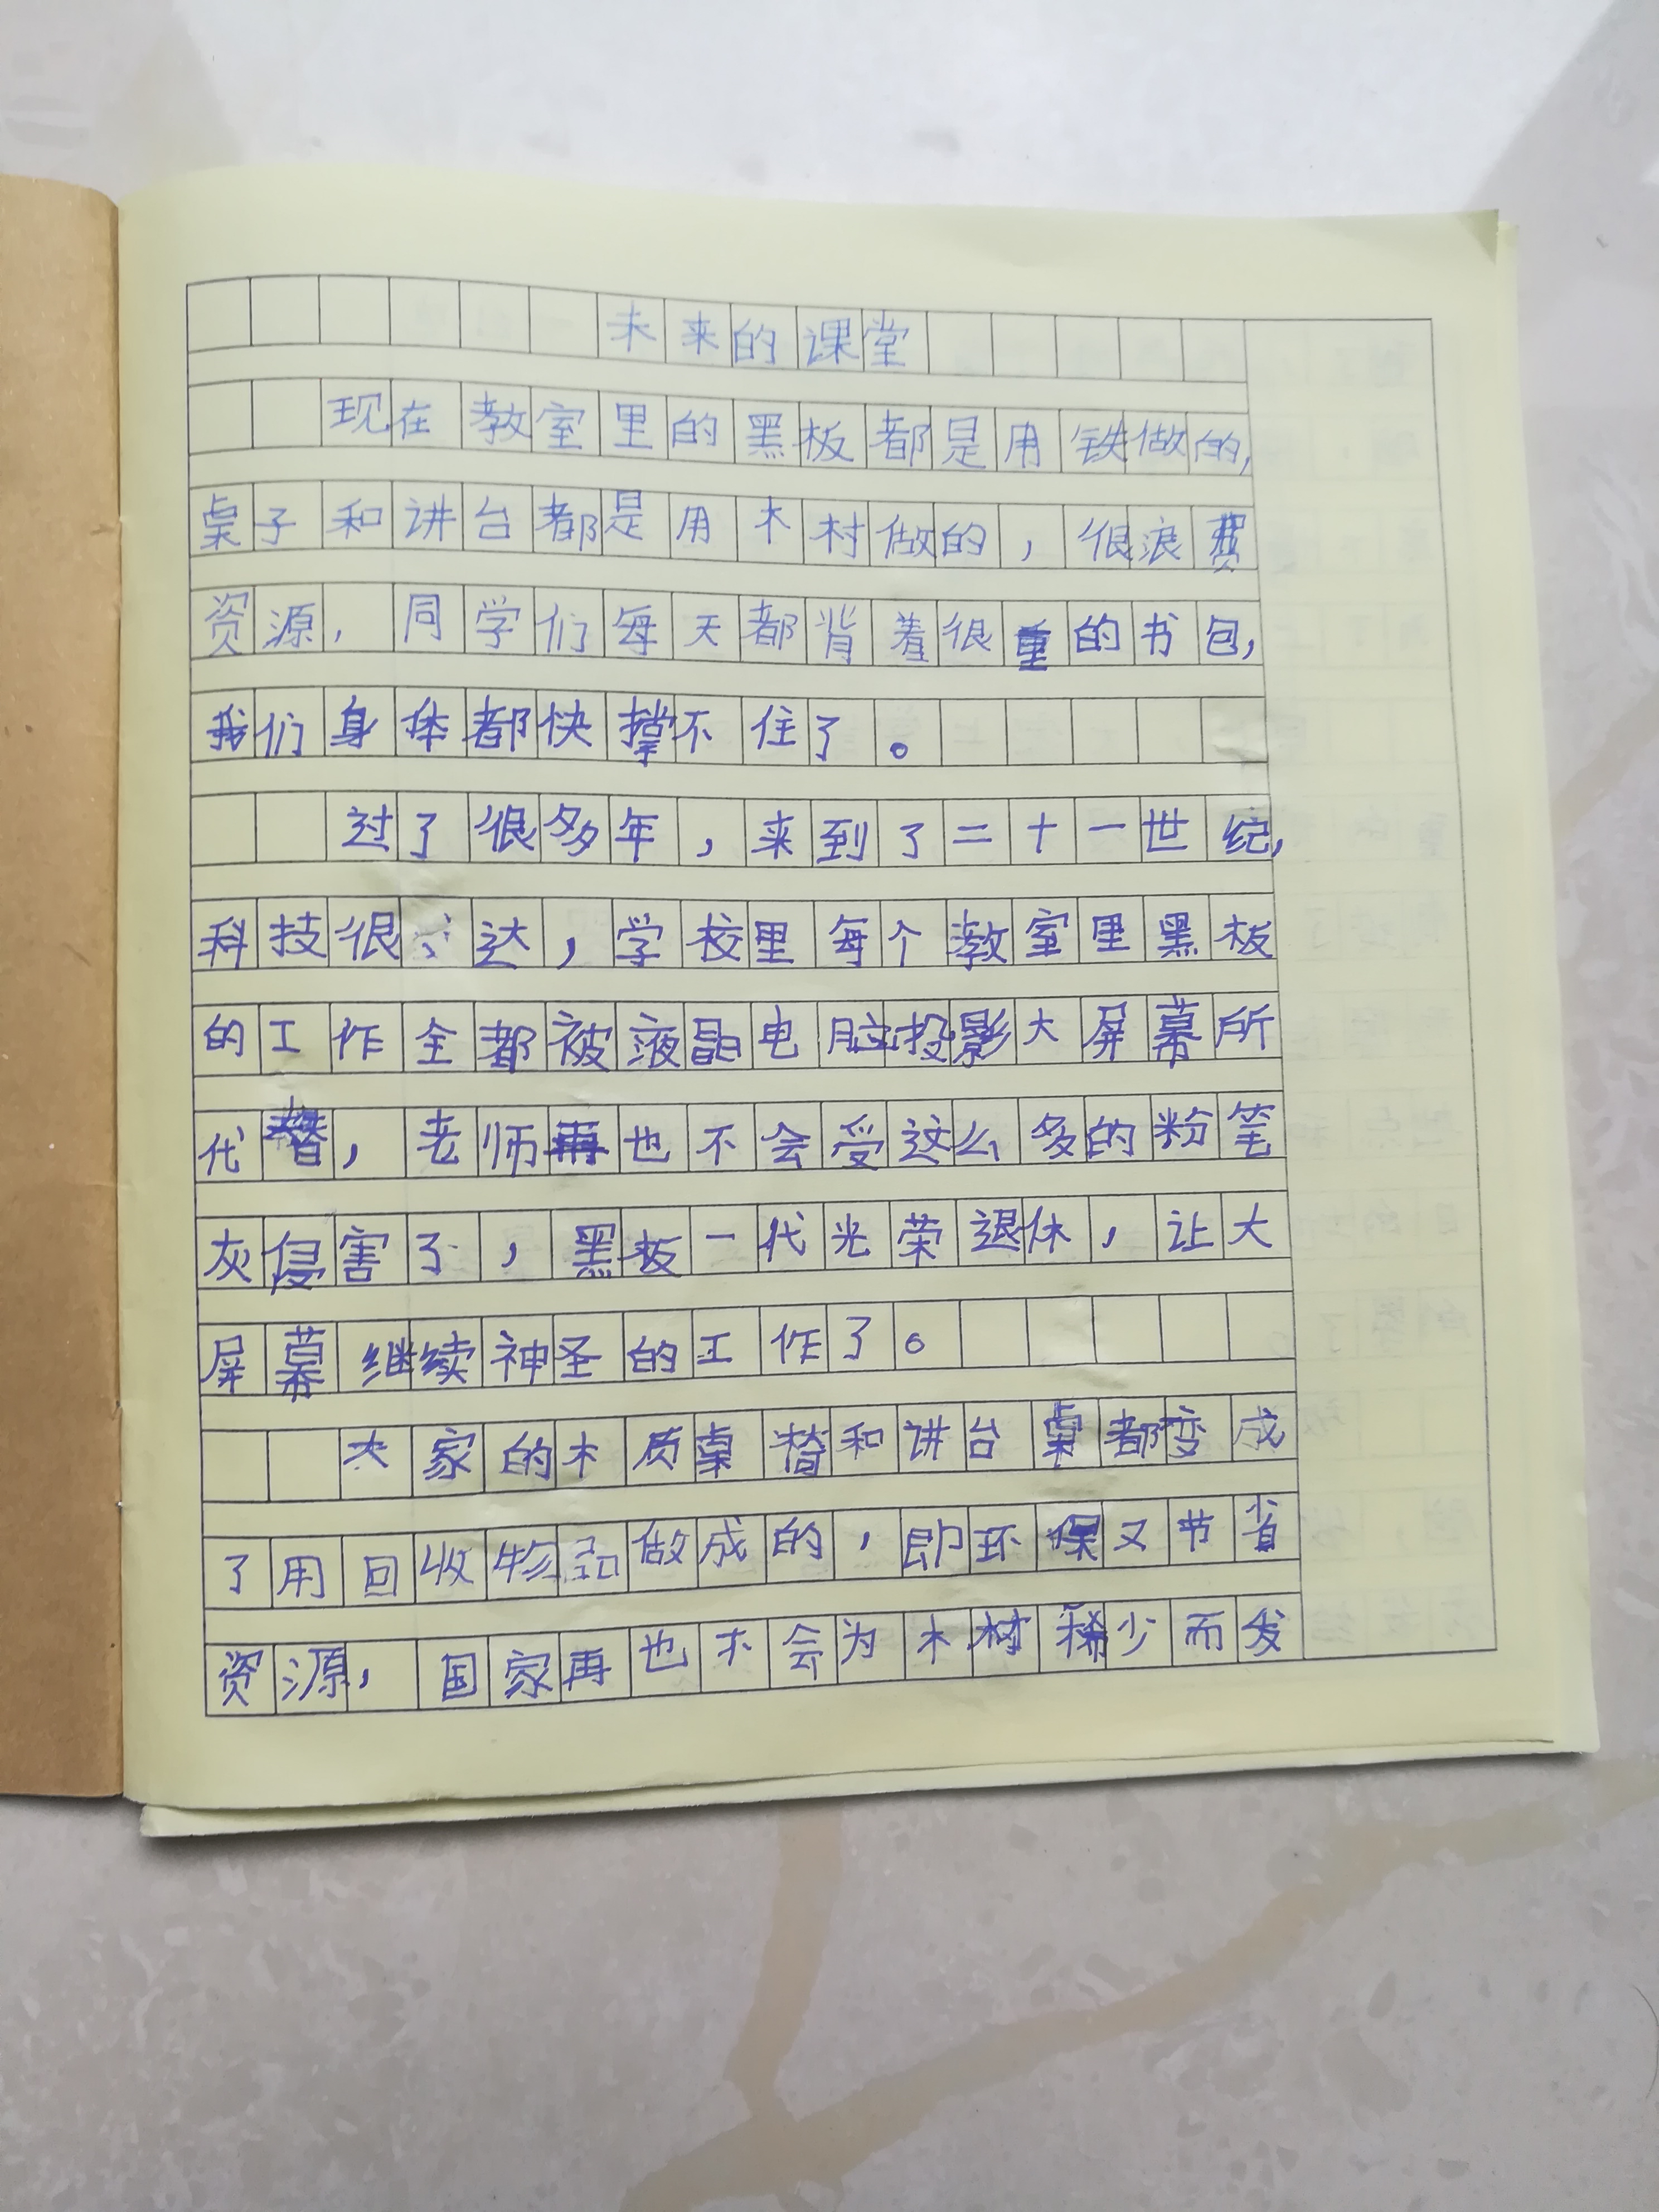 未来的课堂
现在教室里的黑板都是用铁做的,
桌子和讲台都是用木村做的，很浪费
资源，同学们每天都背着很重的书包,
我们身体都快撑不住了。
过了很多年，来到了二十一世纪,
科技很达，学校里每个教室里黑板
的工作全都被液晶电脑投影大屏幕所
代替，老师再也不会受这么多的粉笔
灰侵害了，黑板一代光荣退休，让大
屏幕继续神圣的工作了。
大家的木质桌椅和讲台桌都变成
了用回收物品做成的，即环保又节省
资源，国家再也不会为木材稀少而发